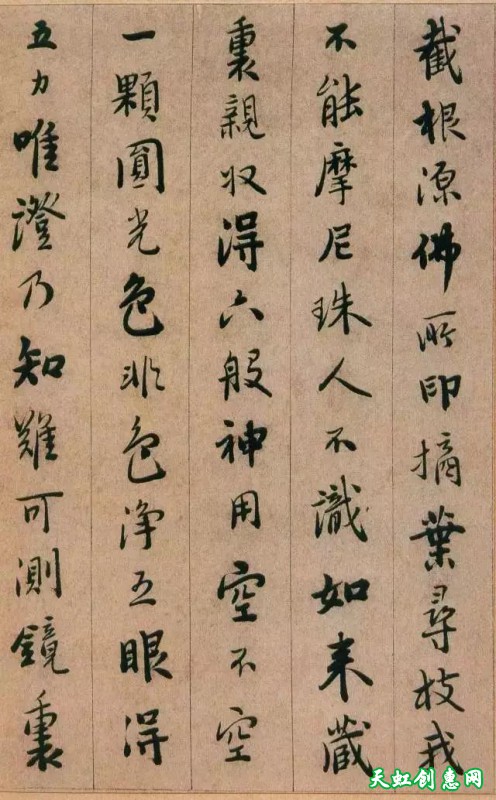 截根源佛所印摘葉尋枝我
不能摩尼珠人不識如来藏
裏親收得六般神用空不空
一顆圓光色非色淨五眼得
五力唯證乃知難可測鏡裏
天虹创惠网